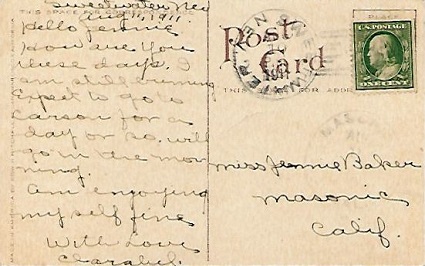 Sweetwater Nev
Aug 11, 1911.
Hello Jennie
How are You
these days. I
am still running
Expect to go to
Carson for a
day or so, will
go in the mor
ning.
Am enjoying
myself fine
With Love
Clarabel.
Post
Card
PLACE
U.S. POSTAGE
ONE CENT
THIS FOR ADDR
1911
Miss Jennie Baker
Masonic
Calif.